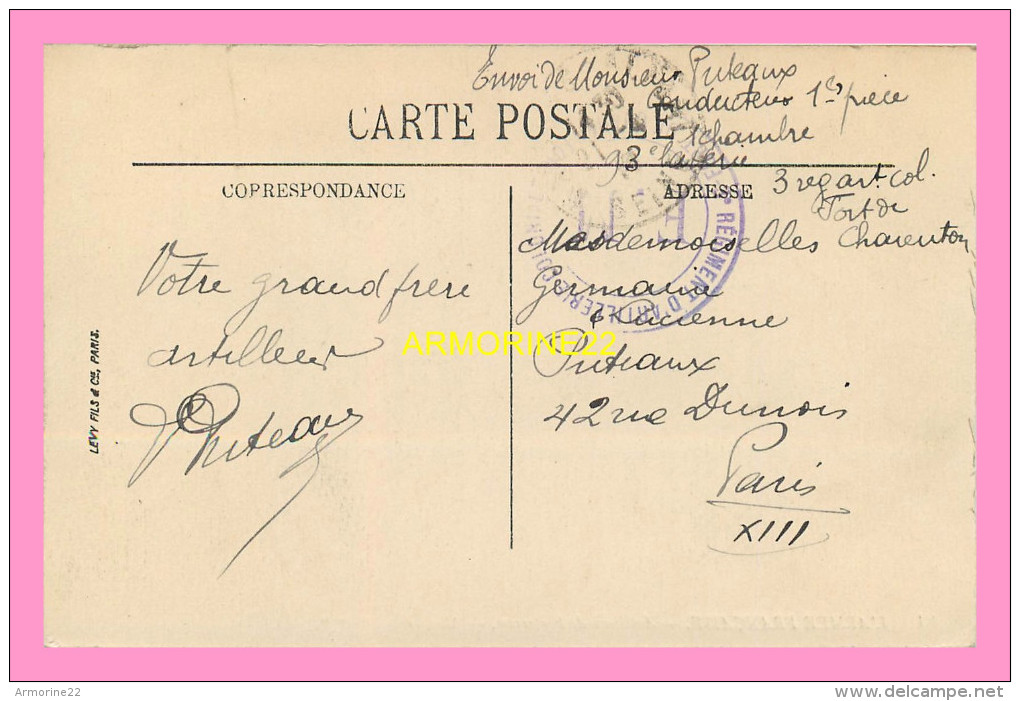 Envoi de Monsieur Puteaux
Conducteur 1re pièce
CARTE POSTALE
1 chambre
93e batterie
3 reg art. col.
Fort de
Charenton
CORRESPONDANCE
ADRESSE
RÉGIMENT D'ARTILLERIE COLONIALE
Votre grand frère
artilleur
Puteaux
Mesdemoiselles
Germaine
& Lucienne
Puteaux
42 rue Dunois
Paris
XIII
LEVY FILS & Cie, PARIS.
ARMORINE22
Armorine22
http://www.delcampe.net